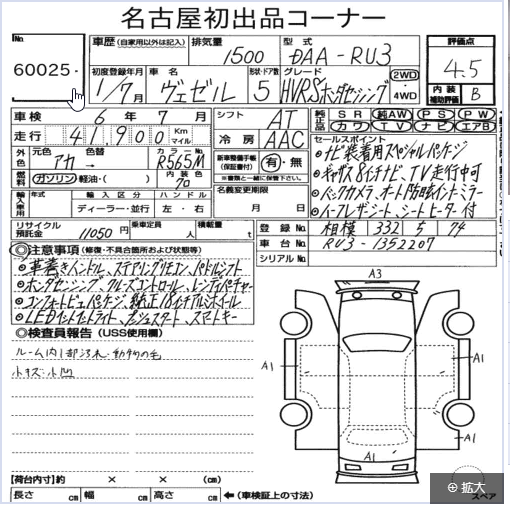 名古屋初出品コーナー
No.
60025-
車歴 (自家用以外は記入)
排気量
1500
型式
DAA-RU3
評価点
4.5
初度登録年月
1/7月
車名
ヴェゼル
形状・ドア数
5
グレード
HVRSホンダセンシング
2WD
4WD
内装
補助評価
B
車検 6年 7月
走行 41900 Km マイル
シフト AT
冷房 AAC
純正品 SR 純AW PS PW
カワ TV ナビ エアB
外色 元色 アカ 色替 →
カラーNo.
R565M
燃料 ガソリン 軽油・( )
内装色
クロ
新車整備手帳
(保証書付)
有・無
※書類と一緒に保管下さい。
セールスポイント
◎ナビ装着用スペシャルパッケージ
◎ギャザズ8インチナビ、TV走行中可
◎バックカメラ、オート防眩インナーミラー
◎ハーフレザーシート、シートヒーター付
輸入車用
輸入区分
ハンドル
ディーラー・並行
左・右
名義変更期限
月 日
リサイクル
預託金
11050円
乗車定員
人
積載量
t
登録No. 相模 332 さ 74
車台No. RU3-1352207
シリアルNo.
◎注意事項 (修復・不具合箇所および状態等)
◎革巻きハンドル、ステアリングリモコン、パドルシフト
◎ホンダセンシング、クルーズコントロール、レーンディパーチャー
◎コンフォートビューパッケージ、純正18インチアルミホイール
◎LEDヘッドオートライト、プッシュスタート、スマートキー
◎検査員報告 (USS使用欄)
ルーム内1部汚れ・動物の毛
小キズ・小凹
A3
A1
A1
A1
A1
【荷台内寸】約 × × (cm)
長さ cm 幅 cm 高さ cm ←(車検証上の寸法)
スペア
拡大